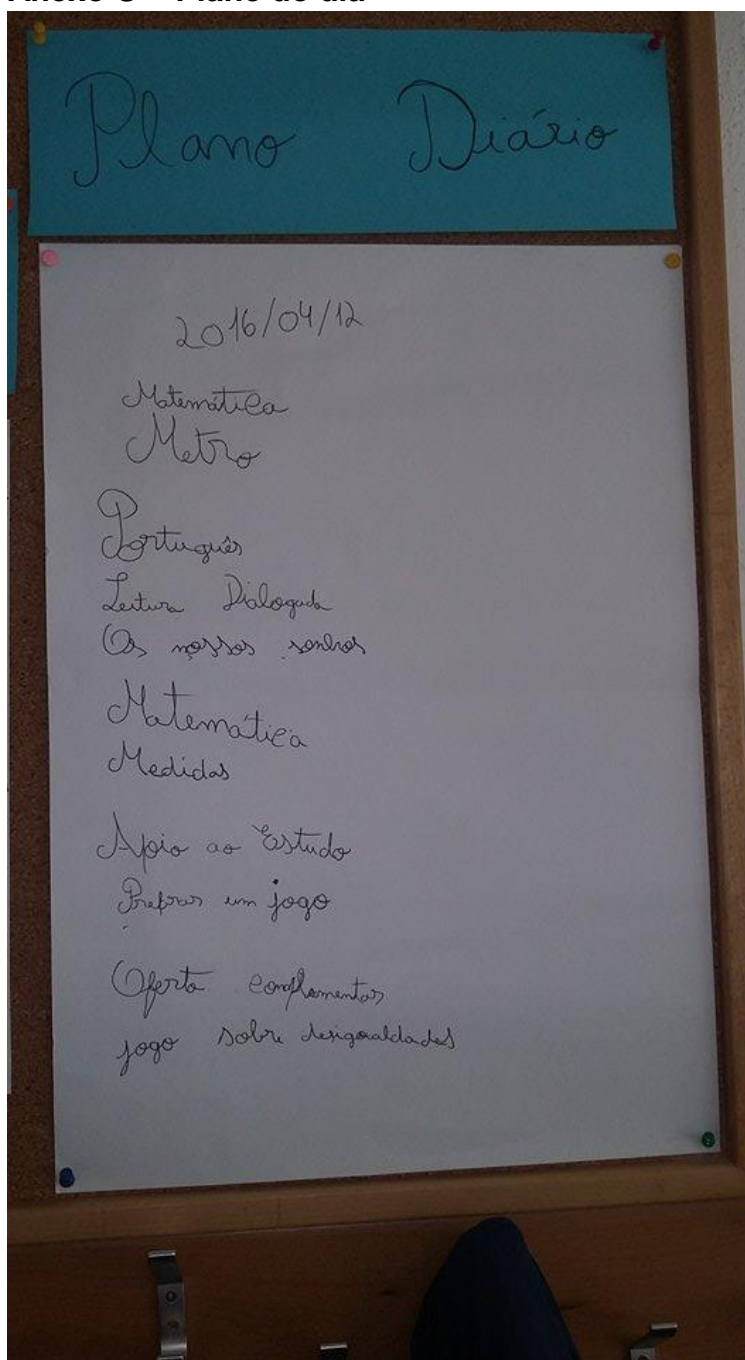 Plano Diário
2016/04/12
Matemática
Metro
Português
Leitura Dialogada
Os nossos sonhos
Matemática
Medidas
Apoio ao Estudo
Preprar um jogo
Oferta complementar
jogo sobre desigualdades